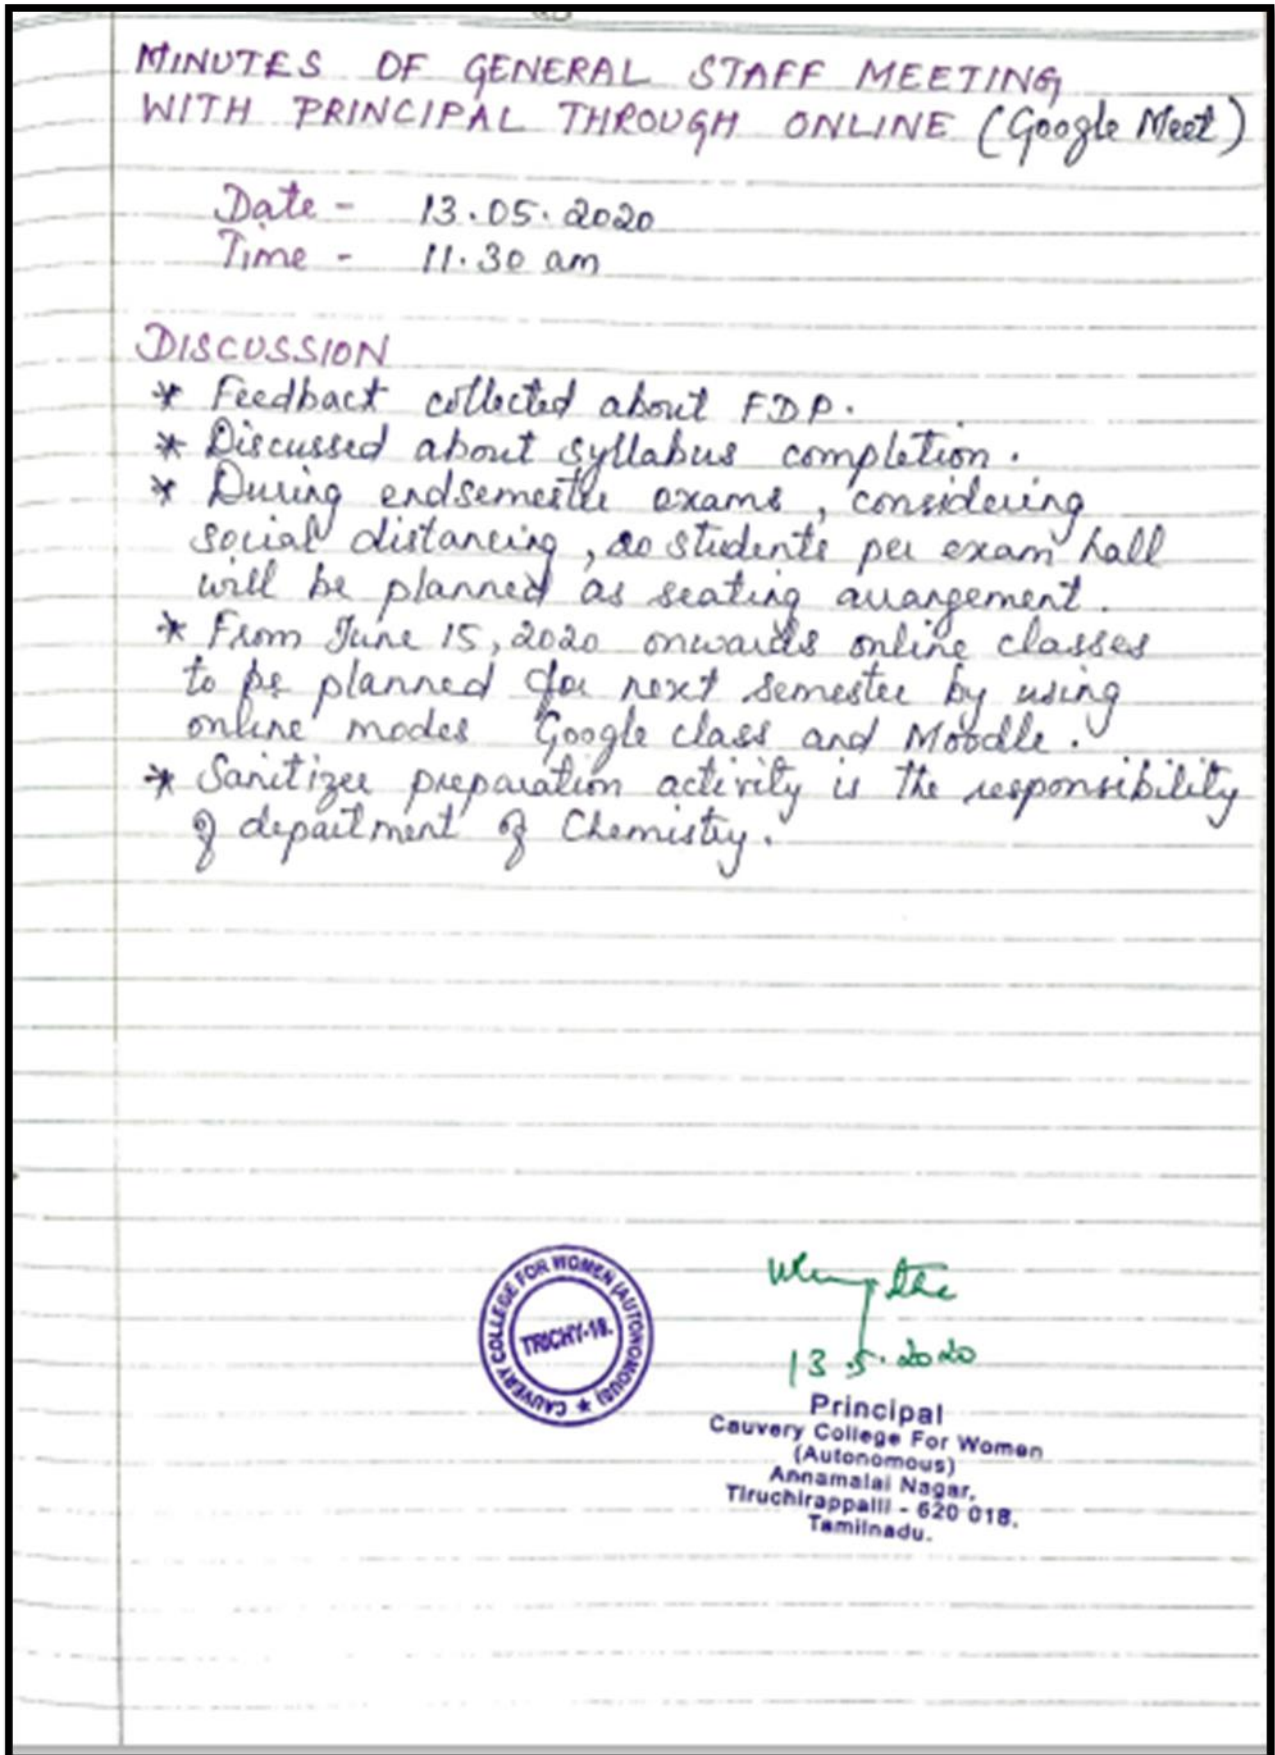 MINUTES OF GENERAL STAFF MEETING
WITH PRINCIPAL THROUGH ONLINE (Google Meet)
Date - 13.05.2020
Time - 11.30 am
DISCUSSION
* Feedback collected about FDP.
* Discussed about syllabus completion.
* During endsemester exams, considering
social distancing, 20 students per exam hall
will be planned as seating arrangement.
* From June 15, 2020 onwards online classes
to be planned for next semester by using
online modes Google class and Moodle.
* Sanitizer preparation activity is the responsibility
of department of Chemistry.
CAUVERY COLLEGE FOR WOMEN (AUTONOMOUS) *
TRICHY-18.
13.5.2020
Principal
Cauvery College For Women
(Autonomous)
Annamalai Nagar,
Tiruchirappalli - 620 018.
Tamilnadu.